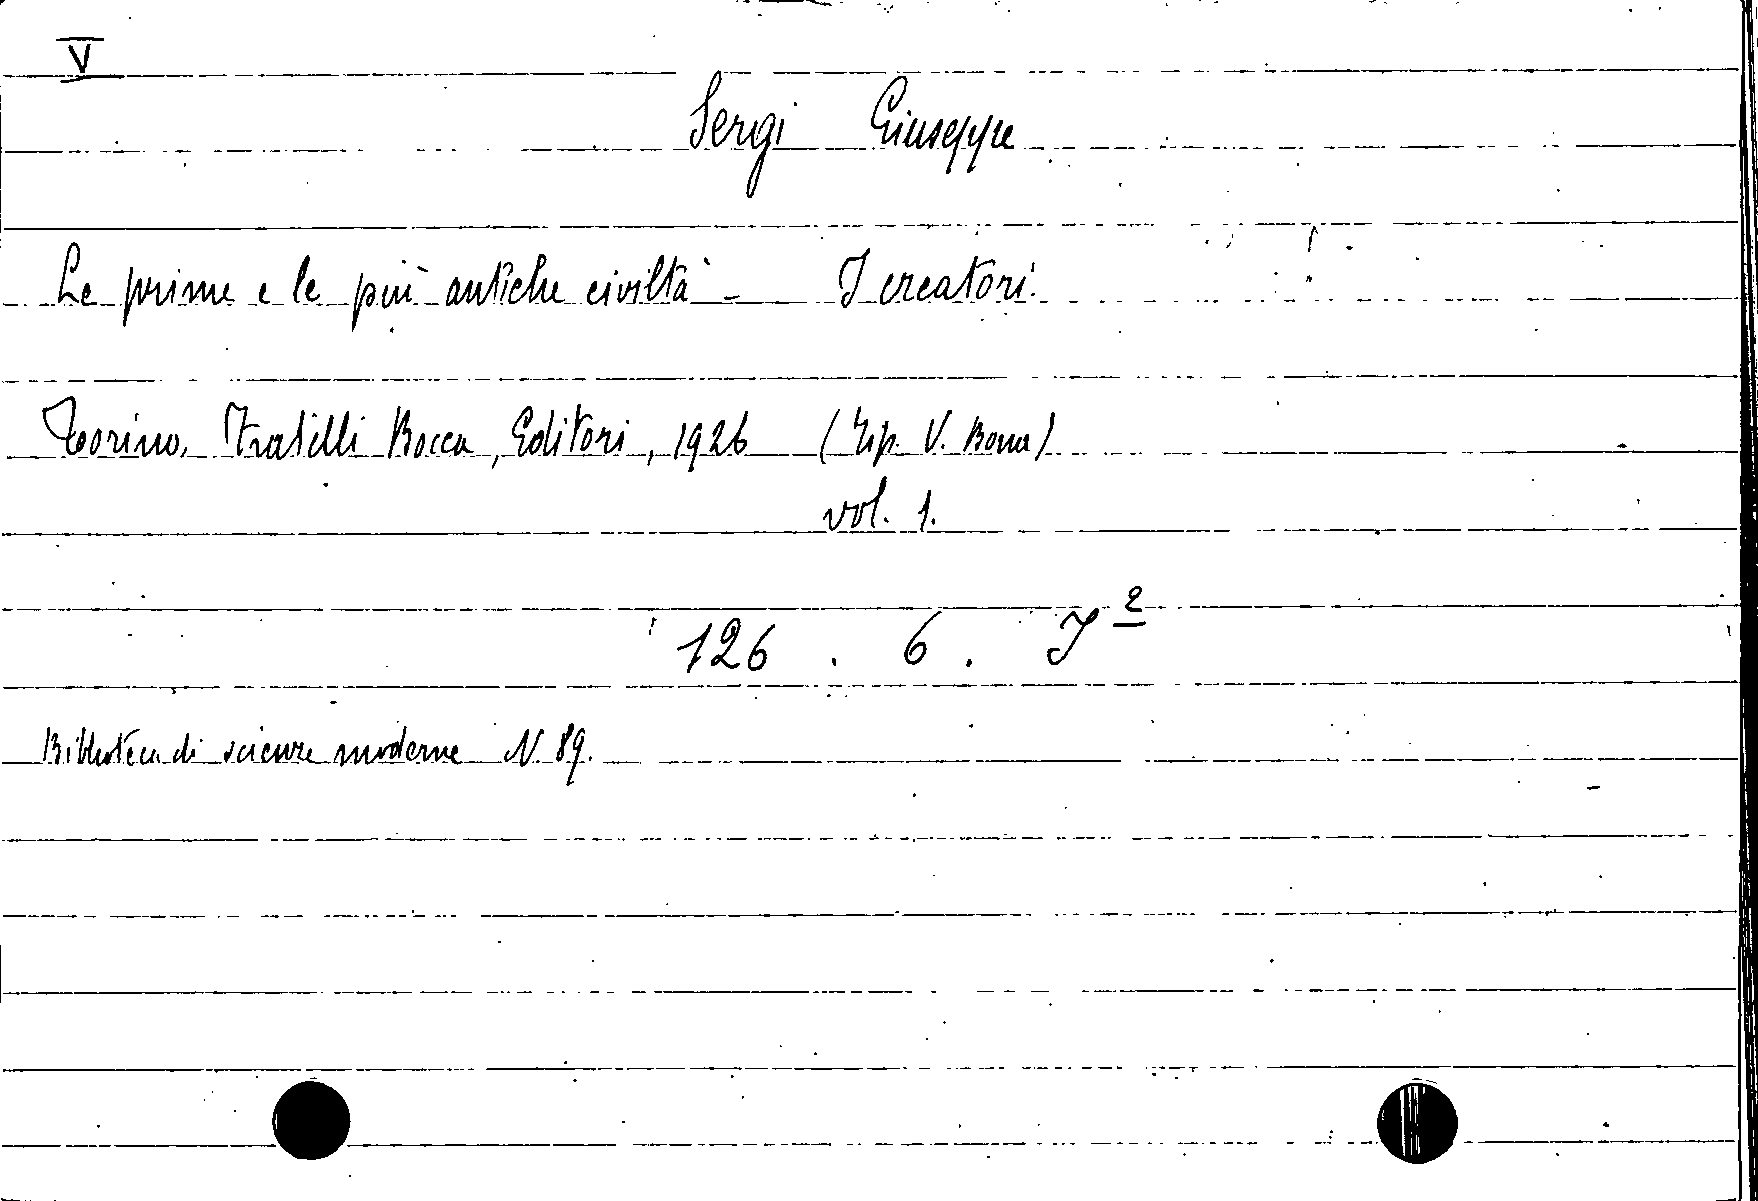 V
Sergi Giuseppe
Le prime e le più antiche civiltà - I creatori.
Torino, Fratelli Bocca, Editori, 1926 (Tip. V. Bona)
vol. 1.
126 . 6 . I 2
Biblioteca di scienze moderne N. 89.